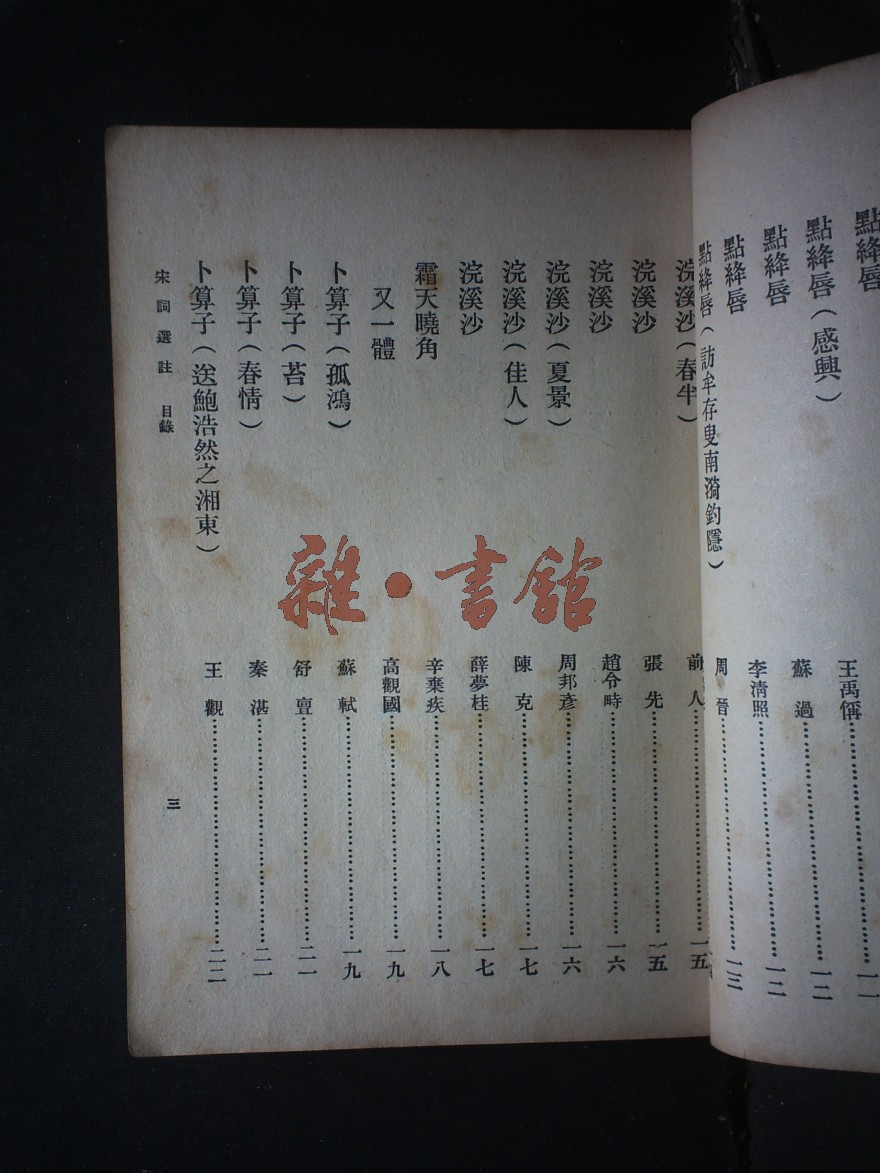 點絳唇 王禹偁 一一
點絳唇（感興） 蘇過 一二
點絳唇 李清照 一二
點絳唇 周晉 一三
點絳唇（訪牟存叟南漪釣隱）
浣溪沙（春半） 前人 一五
浣溪沙 張先 一五
浣溪沙 趙令畤 一六
浣溪沙（夏景） 周邦彥 一六
浣溪沙（佳人） 陳克 一七
浣溪沙 薛夢桂 一七
霜天曉角 辛棄疾 一八
又一體 高觀國 一九
卜算子（孤鴻） 蘇軾 一九
卜算子（苔） 舒亶 二一
卜算子（春情） 秦湛 二一
卜算子（送鮑浩然之湘東） 王觀 二二
宋詞選註 目錄 三
雜·書館